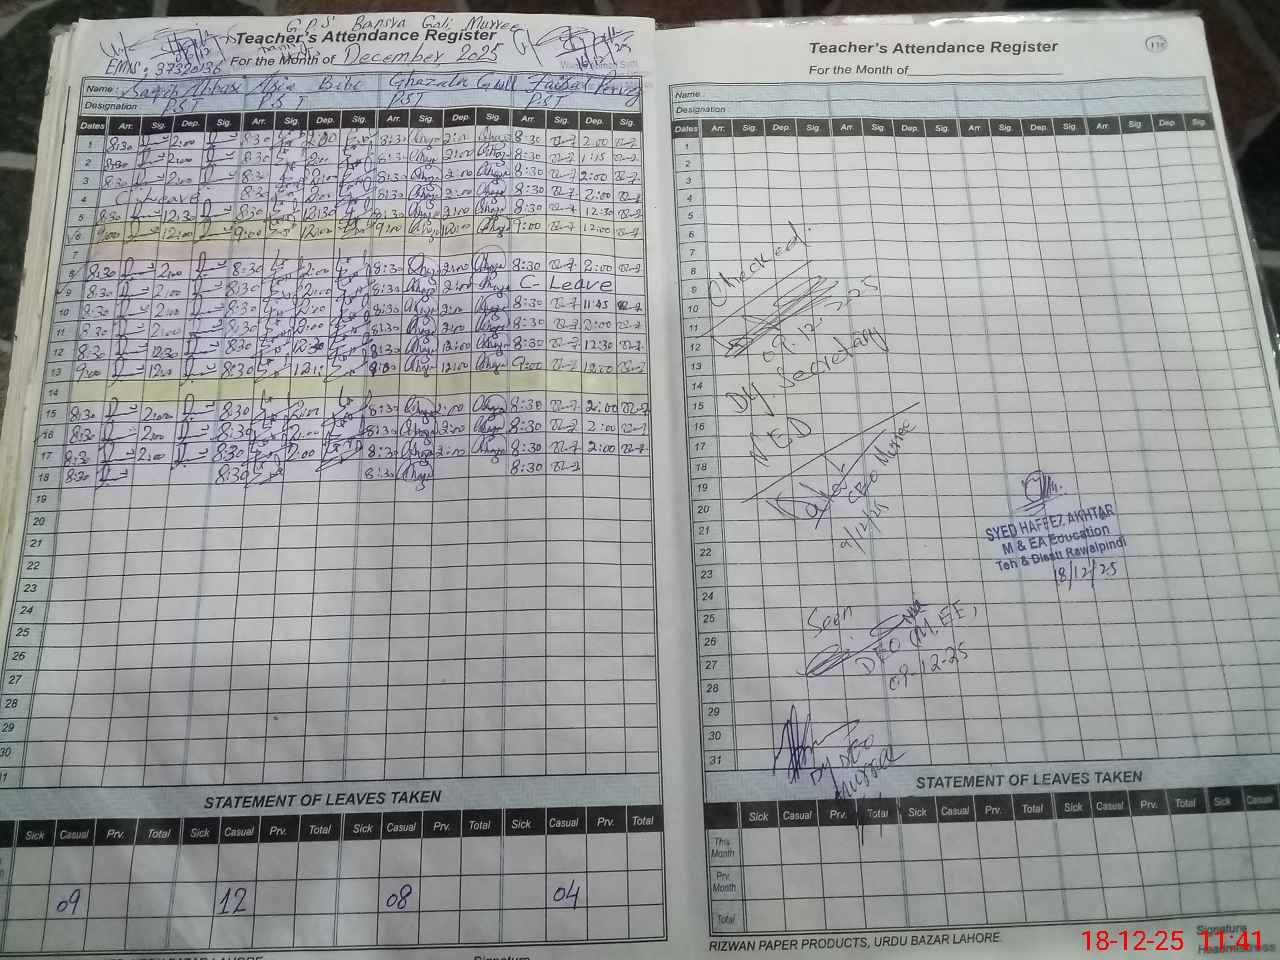 G.P.S Bansra Gali Murree
Teacher's Attendance Register
EMIS: 37320136
For the Month of December 2025
Name: Saqib Abbasi Asia Bibi Ghazala Gull Faisal Pervez
Designation: P.S.T P.S.T P.S.T P.S.T
Dates Arr. Sig. Dep. Sig. Arr. Sig. Dep. Sig. Arr. Sig. Dep. Sig. Arr. Sig. Dep. Sig.
1 8:30 2:00 8:30 2:00 8:30 2:00 8:30 2:00
2 8:30 2:00 8:30 2:00 8:30 2:00 8:30 1:15
3 8:30 2:00 8:30 2:00 8:30 2:00 8:30 2:00
4 C-Leave 8:30 2:00 8:30 2:00 8:30 2:00
5 8:30 12:30 8:30 12:30 8:30 8:30 12:30
6 9:00 12:00 9:00 12:00 9:00 12:00 9:00 12:00
7
8 8:30 2:00 8:30 2:00 8:30 2:00 8:30 2:00
9 8:30 2:00 8:30 2:00 8:30 2:00 C-Leave
10 8:30 2:00 8:30 2:00 8:30 2:00 8:30 11:45
11 8:30 2:00 8:30 2:00 8:30 2:00 8:30 2:00
12 8:30 12:30 8:30 12:30 8:30 12:00 8:30 12:30
13 9:00 12:00 8:30 12:00 9:00 12:00
14
15 8:30 2:00 8:30 2:00 8:30 2:00 8:30 2:00
16 8:30 2:00 8:30 2:00 8:30 2:00 8:30 2:00
17 8:30 2:00 8:30 2:00 8:30 2:00 8:30 2:00
18 8:30 8:30 8:30 8:30
19
20
21
22
23
24
25
26
27
28
29
30
STATEMENT OF LEAVES TAKEN
Sick Casual Prv. Total Sick Casual Prv. Total Sick Casual Prv. Total Sick Casual Prv. Total
09 12 08 04
Teacher's Attendance Register
For the Month of
Name:
Designation:
Dates Arr. Sig. Dep. Sig. Arr. Sig. Dep. Sig. Arr. Sig. Dep. Sig. Arr. Sig. Dep. Sig.
1
2
3
4
5
6
7
8
9
10
11
12
13
14
15
16
17
18
19
20
21
22
23
24
25
26
27
28
29
30
31
Checked.
09.12.2025
Dy. Secretary
NED
CEO Murree
9/12/25
SYED HAFEEZ AKHTAR
M & EA Education
Teh & Distt Rawalpindi
18/12/25
Seen
DEO (M.EE)
09-12-25
Dy DEO
Murree
STATEMENT OF LEAVES TAKEN
Sick Casual Prv. Total Sick Casual Prv. Total Sick Casual Prv. Total Sick Casual
This Month
Prv. Month
Total
RIZWAN PAPER PRODUCTS, URDU BAZAR LAHORE.
Signature
Headmistress
18-12-25 11:41